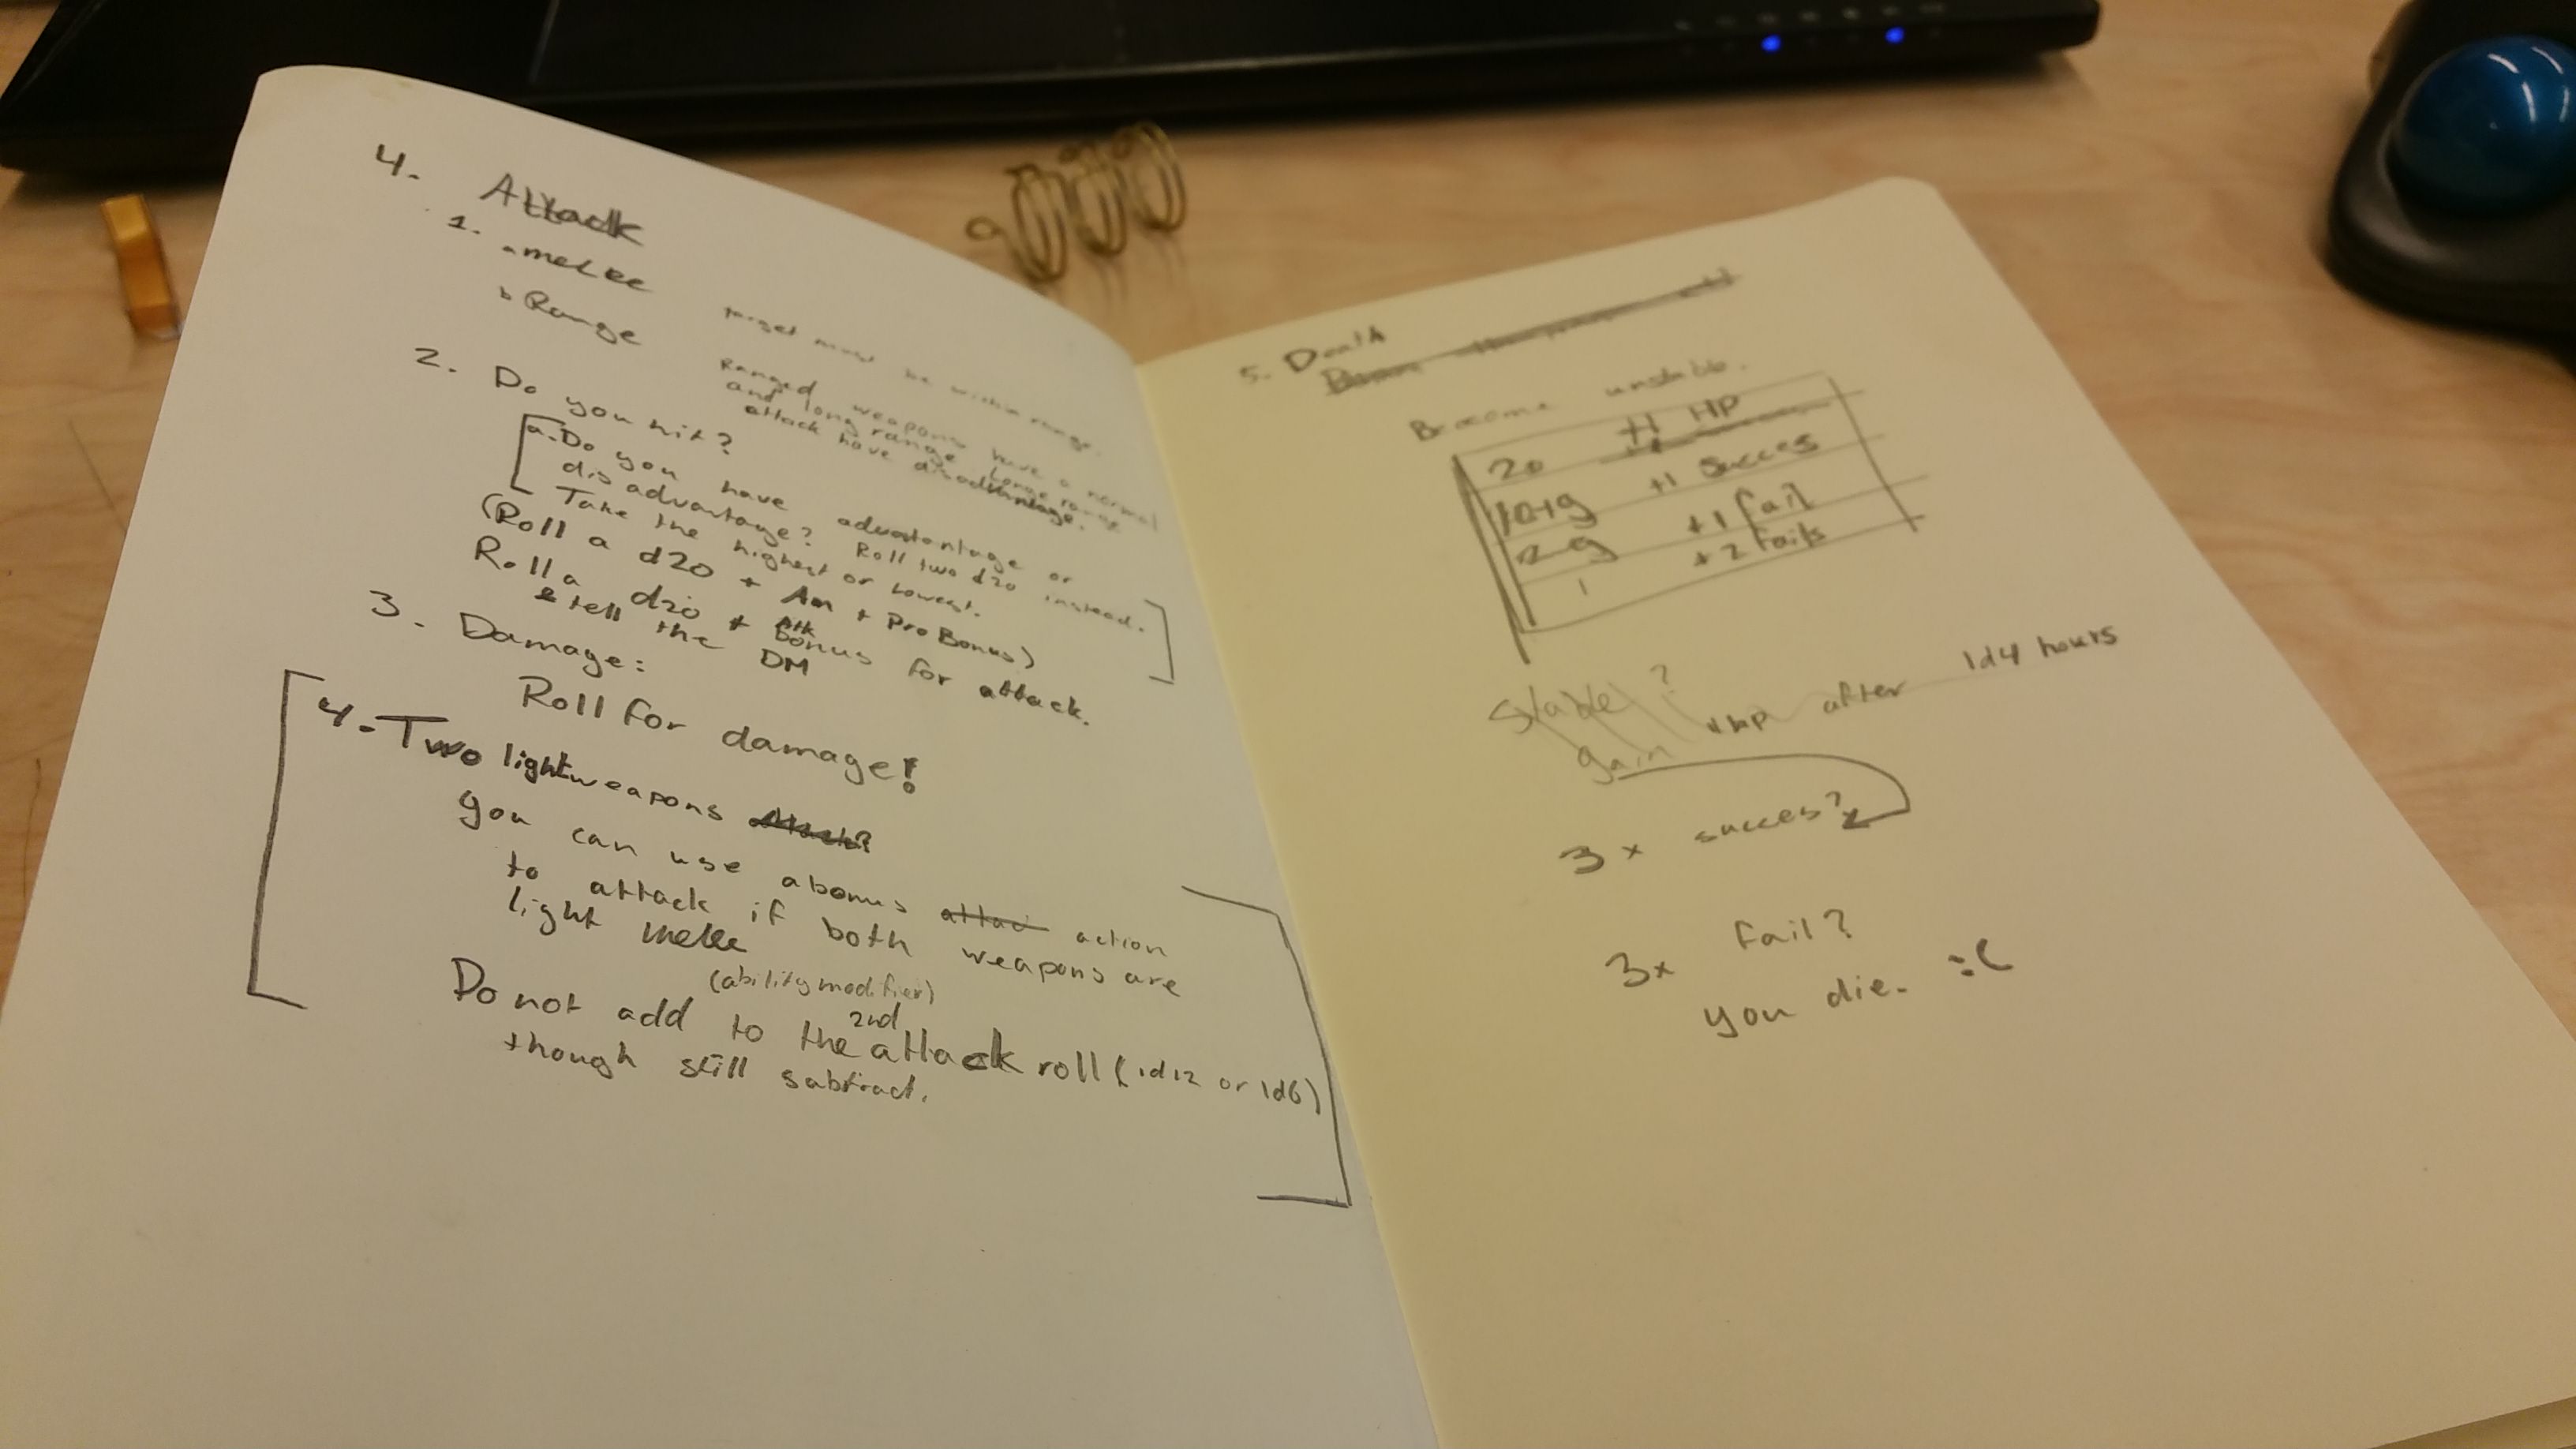 4. Attack
1. a melee
target must be within range.
b Range
Ranged weapons have a normal
and long range. Long range
attack have disadvantage.
2. Do you hit?
a. Do you have advatantage or
disadvantage? Roll two d20 instead.
Take the highest or lowest.
(Roll a d20 + Am + Pro Bonus)
Roll a d20 + Atk Bonus for attack.
& tell the DM
3. Damage:
Roll for damage!
4. Two light weapons
you can use a bonus attac action
to attack if both weapons are
light melee
(ability modifier)
Do not add to the 2nd attack roll (1d12 or 1d6)
though still subtract.
5. Death
Become unstable.
20 +1 HP
10-19 +1 Succes
2-9 +1 fail
1 +2 fails
Stable?
gain 1 HP after 1d4 hours
3x succes?
3x fail?
you die. :(